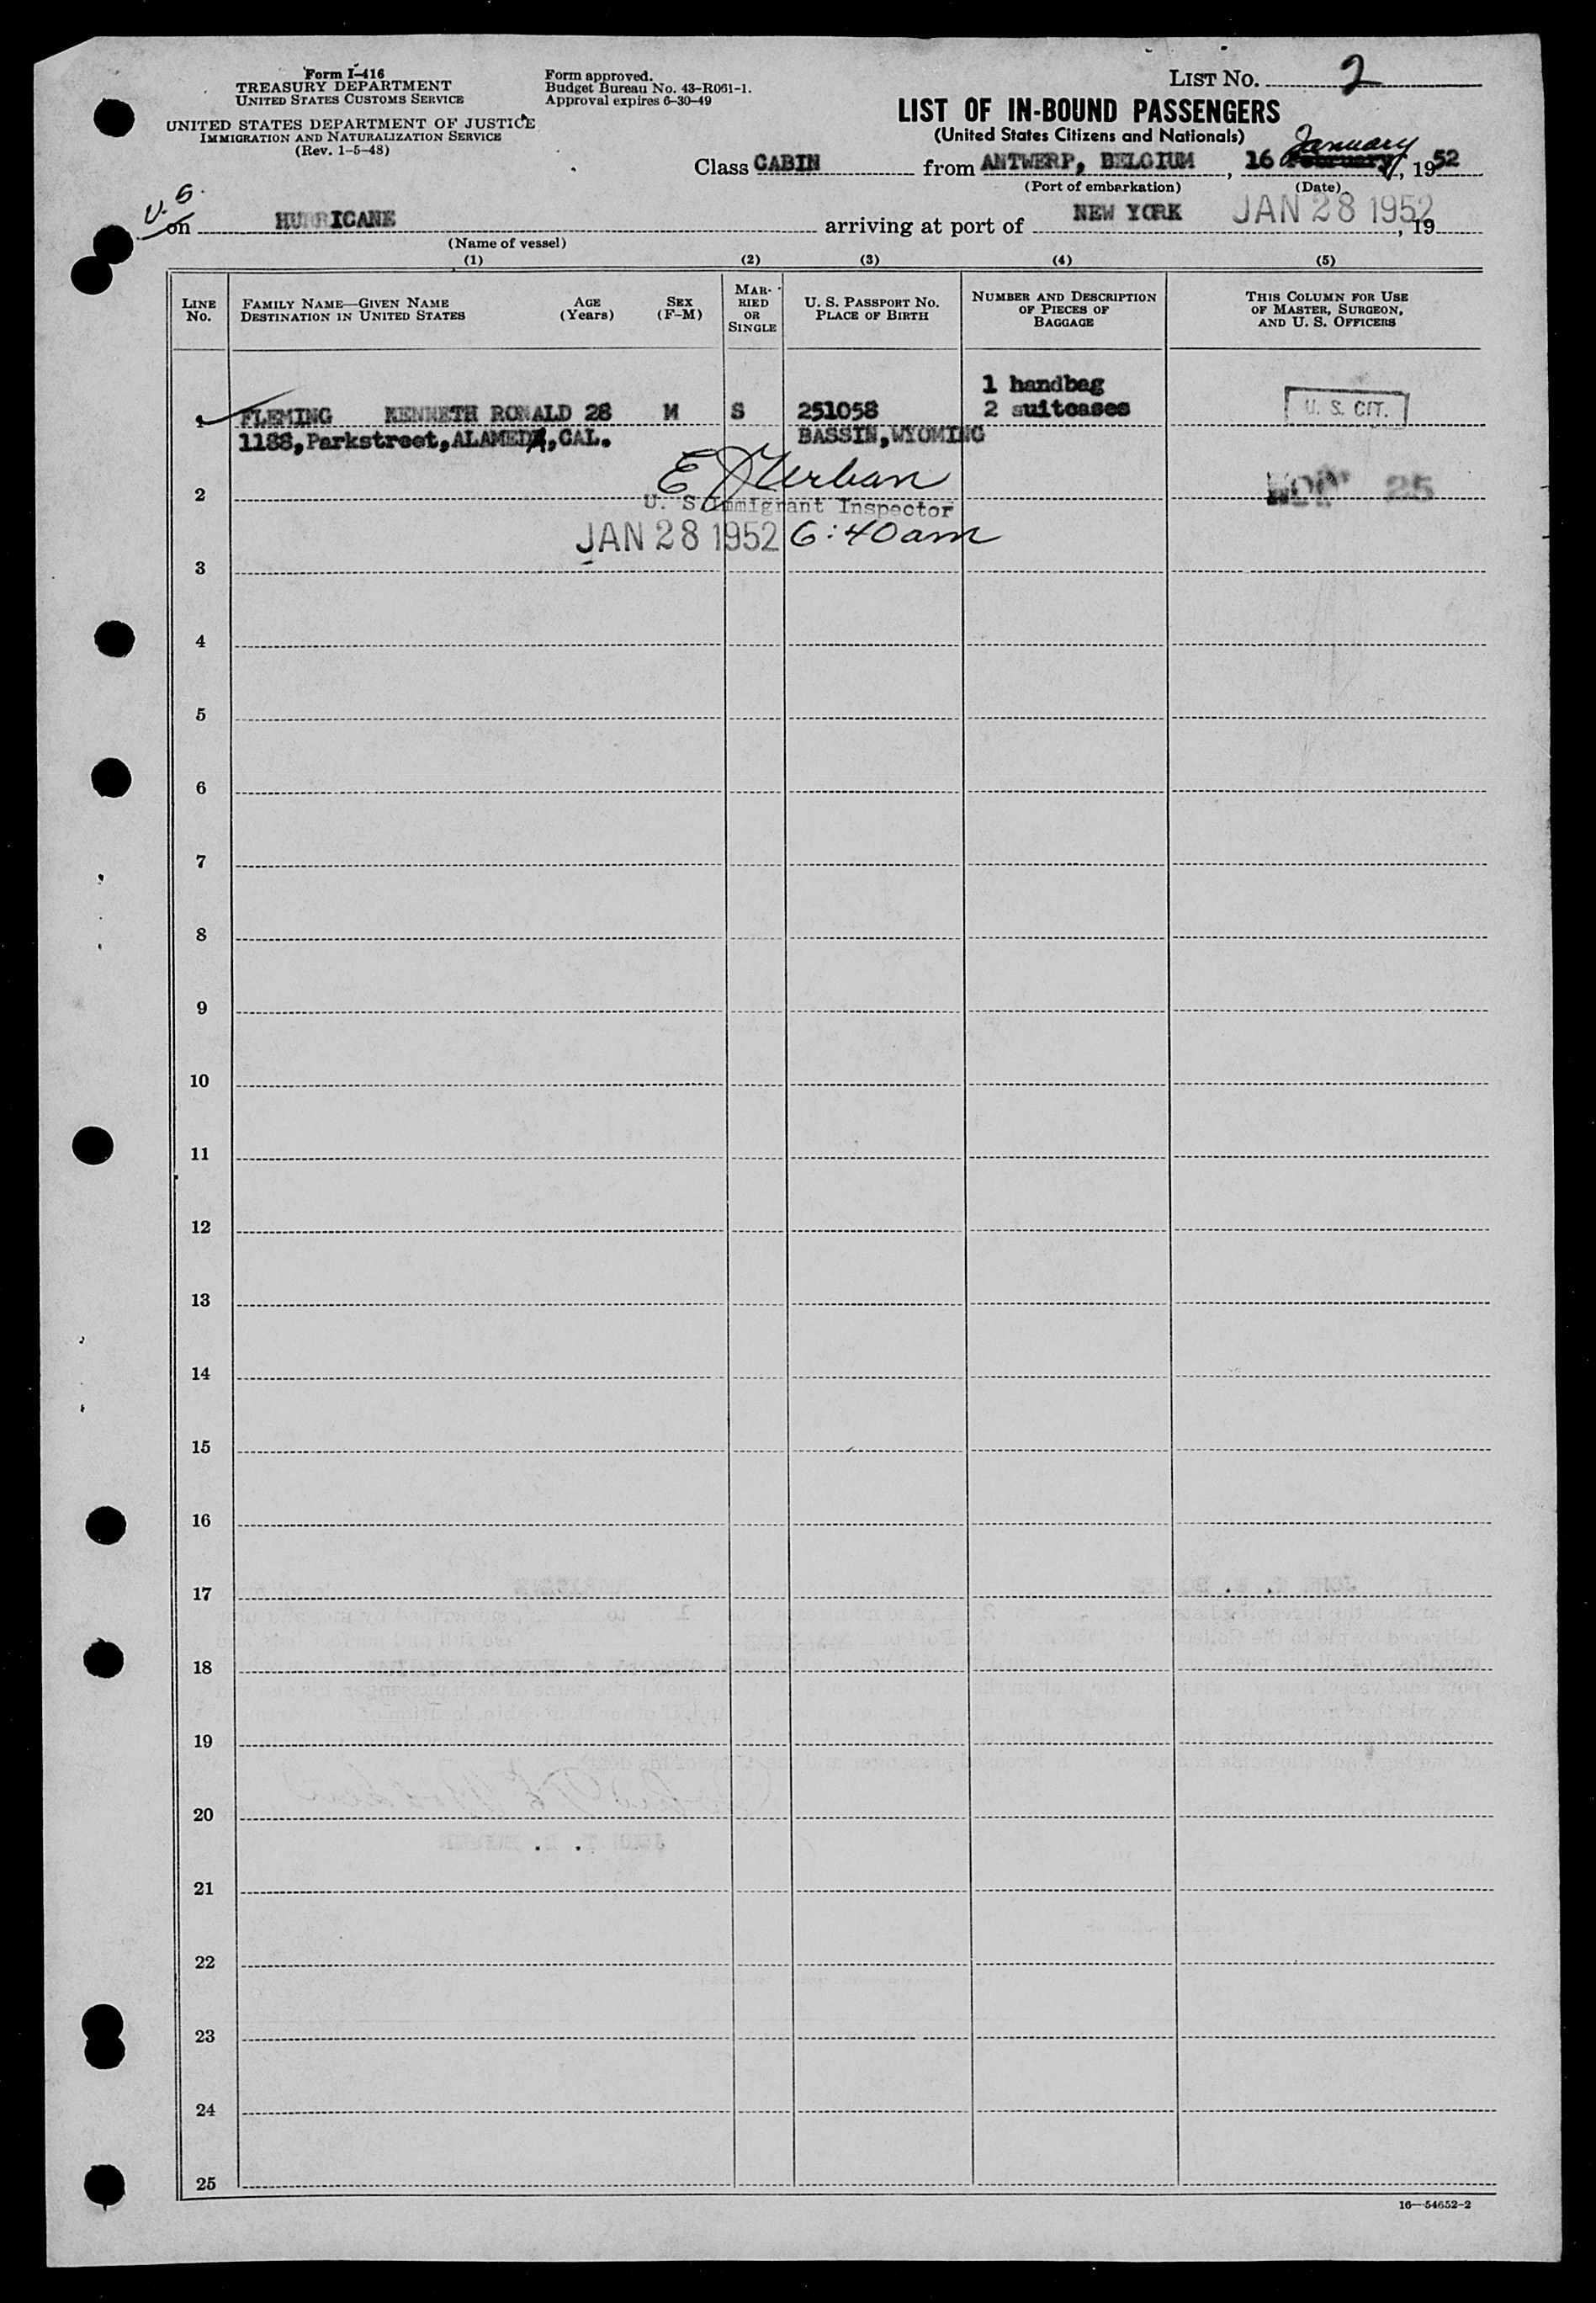 Form I-416
TREASURY DEPARTMENT
UNITED STATES CUSTOMS SERVICE
UNITED STATES DEPARTMENT OF JUSTICE
IMMIGRATION AND NATURALIZATION SERVICE
(Rev. 1-5-48)
Form approved.
Budget Bureau No. 43-R061-1.
Approval expires 6-30-49
LIST NO. 2
LIST OF IN-BOUND PASSENGERS
(United States Citizens and Nationals)
January
Class CABIN from ANTWERP, BELGIUM, 16 February, 1952
(Port of embarkation) (Date)
U.S.
on HURRICANE arriving at port of NEW YORK JAN 28 1952, 19
(Name of vessel)
(1) (2) (3) (4) (5)
LINE NO.
FAMILY NAME—GIVEN NAME
DESTINATION IN UNITED STATES
AGE
(Years)
SEX
(F-M)
MAR-
RIED
OR
SINGLE
U. S. PASSPORT NO.
PLACE OF BIRTH
NUMBER AND DESCRIPTION
OF PIECES OF
BAGGAGE
THIS COLUMN FOR USE
OF MASTER, SURGEON,
AND U. S. OFFICERS
1 handbag
1 FLEMING KENNETH RONALD 28 M S 251058 2 suitcases U. S. CIT.
1188,Parkstreet,ALAMEDA,CAL. BASSIN,WYOMING
E J Urban
2 25
U. S. Immigrant Inspector
JAN 28 1952 6:40am
3
4
5
6
7
8
9
10
11
12
13
14
15
16
17
18
19
20
21
22
23
24
25
16—54652-2